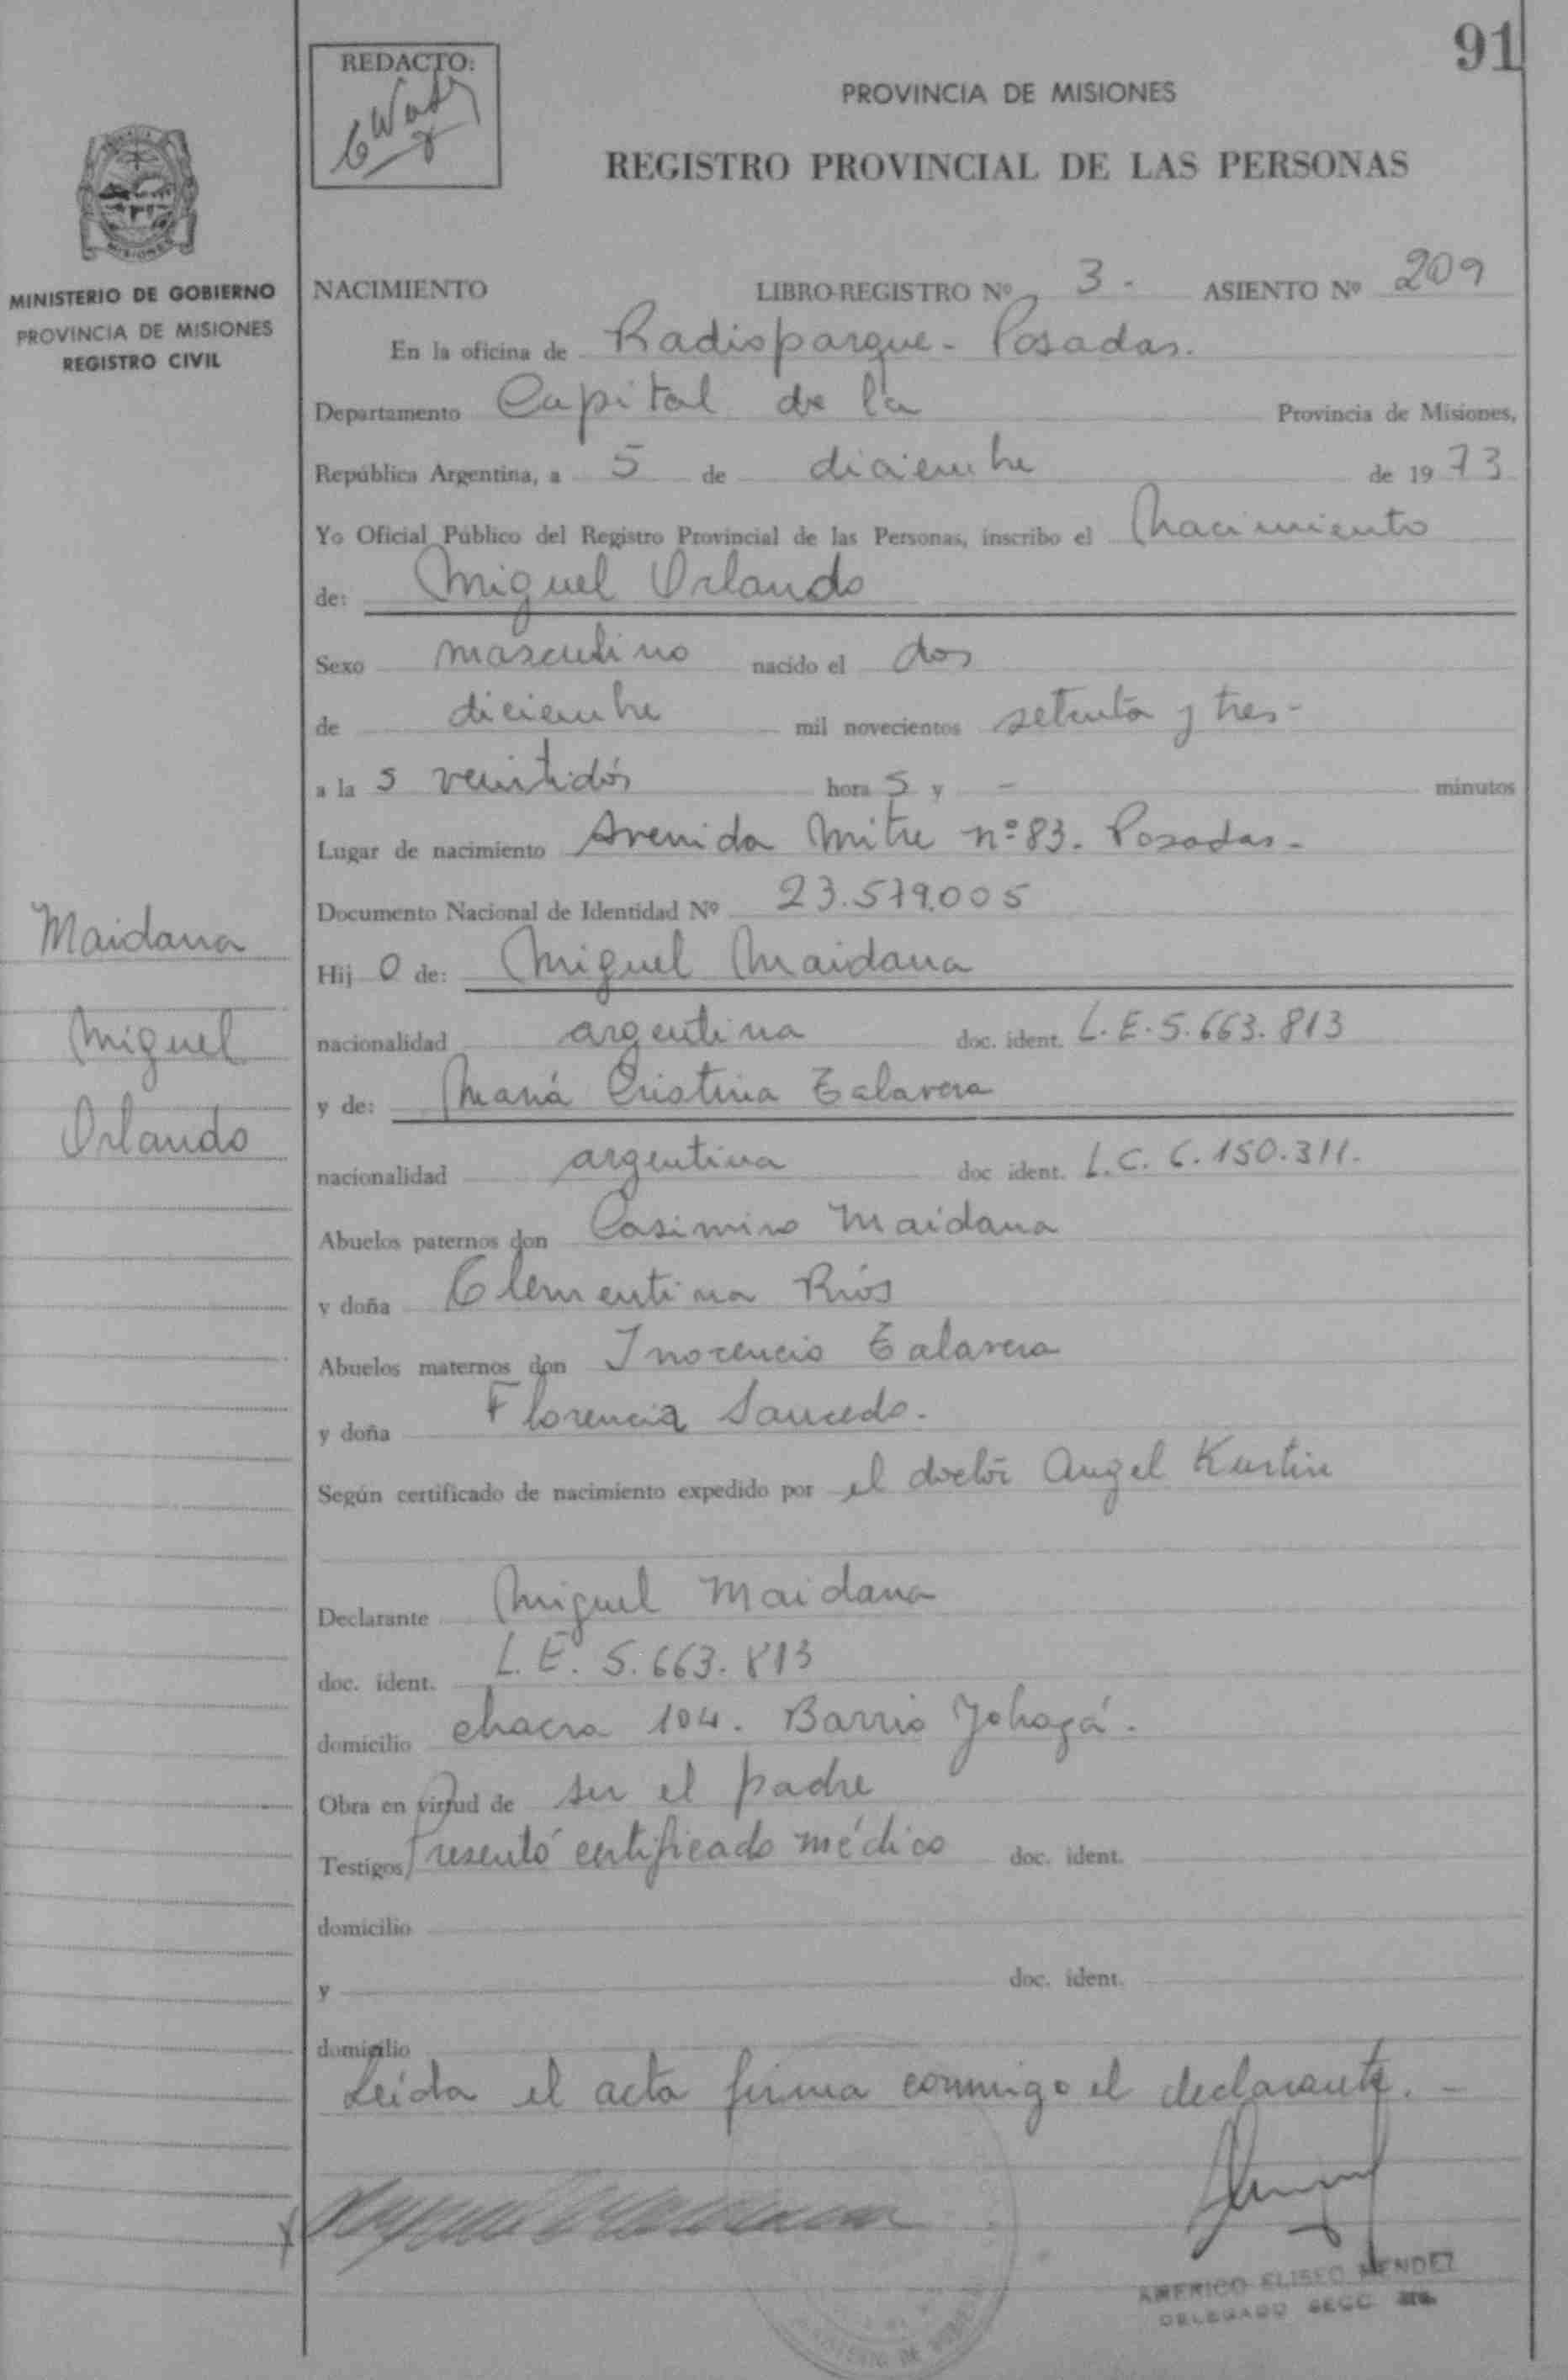 91
REDACTO:
PROVINCIA DE MISIONES
REGISTRO PROVINCIAL DE LAS PERSONAS
MISIONES
MINISTERIO DE GOBIERNO
PROVINCIA DE MISIONES
REGISTRO CIVIL
NACIMIENTO LIBRO-REGISTRO Nº 3- ASIENTO Nº 209
En la oficina de Radioparque - Posadas.
Departamento Capital de la Provincia de Misiones,
República Argentina, a 5 de diciembre de 1973
Yo Oficial Público del Registro Provincial de las Personas, inscribo el Nacimiento
de: Miguel Orlando
Sexo masculino nacido el dos
de diciembre mil novecientos setenta y tres-
a la s veintidós hora s y - minutos
Lugar de nacimiento Avenida Mitre nº 83. Posadas-
Documento Nacional de Identidad Nº 23.579.005
Maidana
Hij o de: Miguel Maidana
Miguel
nacionalidad argentina doc. ident. L.E. 5.663.813
y de: María Cristina Talavera
Orlando
nacionalidad argentina doc ident. L.C. 6.150.311.
Abuelos paternos don Casimiro Maidana
y doña Clementina Ríos
Abuelos maternos don Inocencio Talavera
y doña Florencia Saucedo.
Según certificado de nacimiento expedido por el doctor Angel Kustin
Declarante Miguel Maidana
doc. ident. L.E. 5.663.813
domicilio chacra 104. Barrio Yohasá.
Obra en virtud de ser el padre
Testigos Presentó certificado médico doc. ident.
domicilio
y doc. ident.
domicilio
Leída el acta firma conmigo el declarante. -
AMERICO ELISEO MENDEZ
DELEGADO SECC.